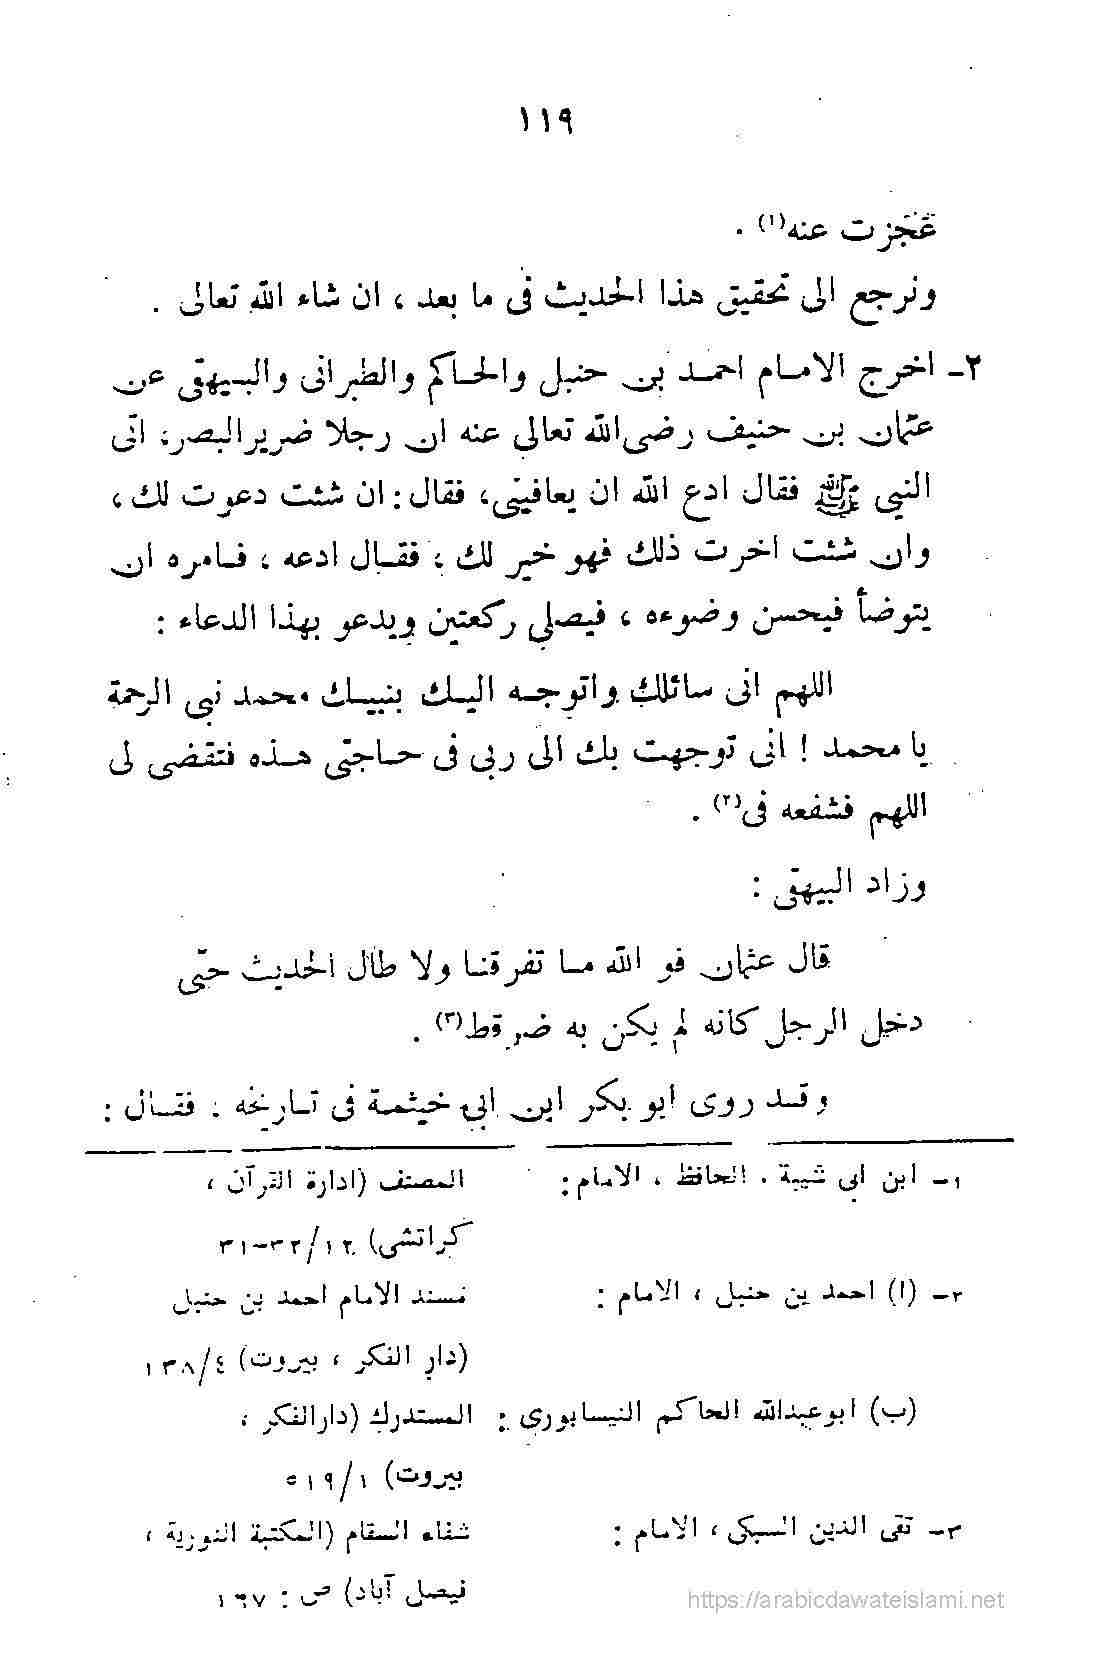 ١١٩
عَجَزت عنه(١) .
ونرجع الى تحقيق هذا الحديث فى ما بعد ، ان شاء الله تعالى .
٢- اخرج الامام احمد بن حنبل والحاكم والطبرانى والبيهقى عن
عثمان بن حنيف رضى الله تعالى عنه ان رجلا ضريرالبصر، اتى
النبى ﷺ فقال ادع الله ان يعافينى، فقال : ان شئت دعوت لك ،
وان شئت اخرت ذلك فهو خير لك ، فقال ادعه ، فامره ان
يتوضأ فيحسن وضوءه ، فيصلي ركعتين ويدعو بهذا الدعاء :
اللهم انى سائلك واتوجه اليك بنبيك محمد نبى الرحمة
يا محمد ! انى توجهت بك الى ربى فى حاجتى هذه فتقضى لى
اللهم فشفعه فى(٢) .
وزاد البيهقى :
قال عثمان فو الله ما تفرقنا ولا طال الحديث حتّى
دخل الرجل كانه لم يكن به ضر قط(٣) .
وقد روى ابو بكر ابن ابي خيثمة فى تاريخه . فقال :
١- ابن ابى شيبة ، الحافظ ، الامام : المصنف (ادارة القرآن ،
كراتشى) ١٢/٣٢-٣١
٢- (ا) احمد بن حنبل ، الامام : مسند الامام احمد بن حنبل
(دار الفكر ، بيروت) ٤/١٣٨
(ب) ابوعبدالله الحاكم النيسابورى : المستدرك (دارالفكر ،
بيروت) ١/٥١٩
٣- تقى الدين السبكى ، الامام : شفاء السقام (المكتبة النورية ،
فيصل آباد) ص : ١٦٧
https://arabicdawateislami.net